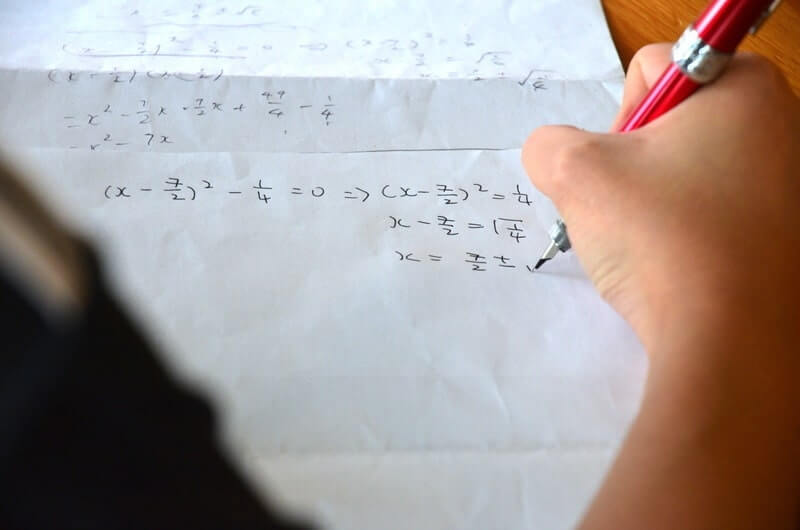 (x - 7/2)² - 1/4 = 0 ⇒ (x - 7/2)² = 1/4
(x - 7/2) (x - 7/2)
= x² - 7/2 x - 7/2 x + 49/4 - 1/4
= x² - 7x
(x - 7/2)² - 1/4 = 0 ⇒ (x - 7/2)² = 1/4
x - 7/2 = √1/4
x = 7/2 ±